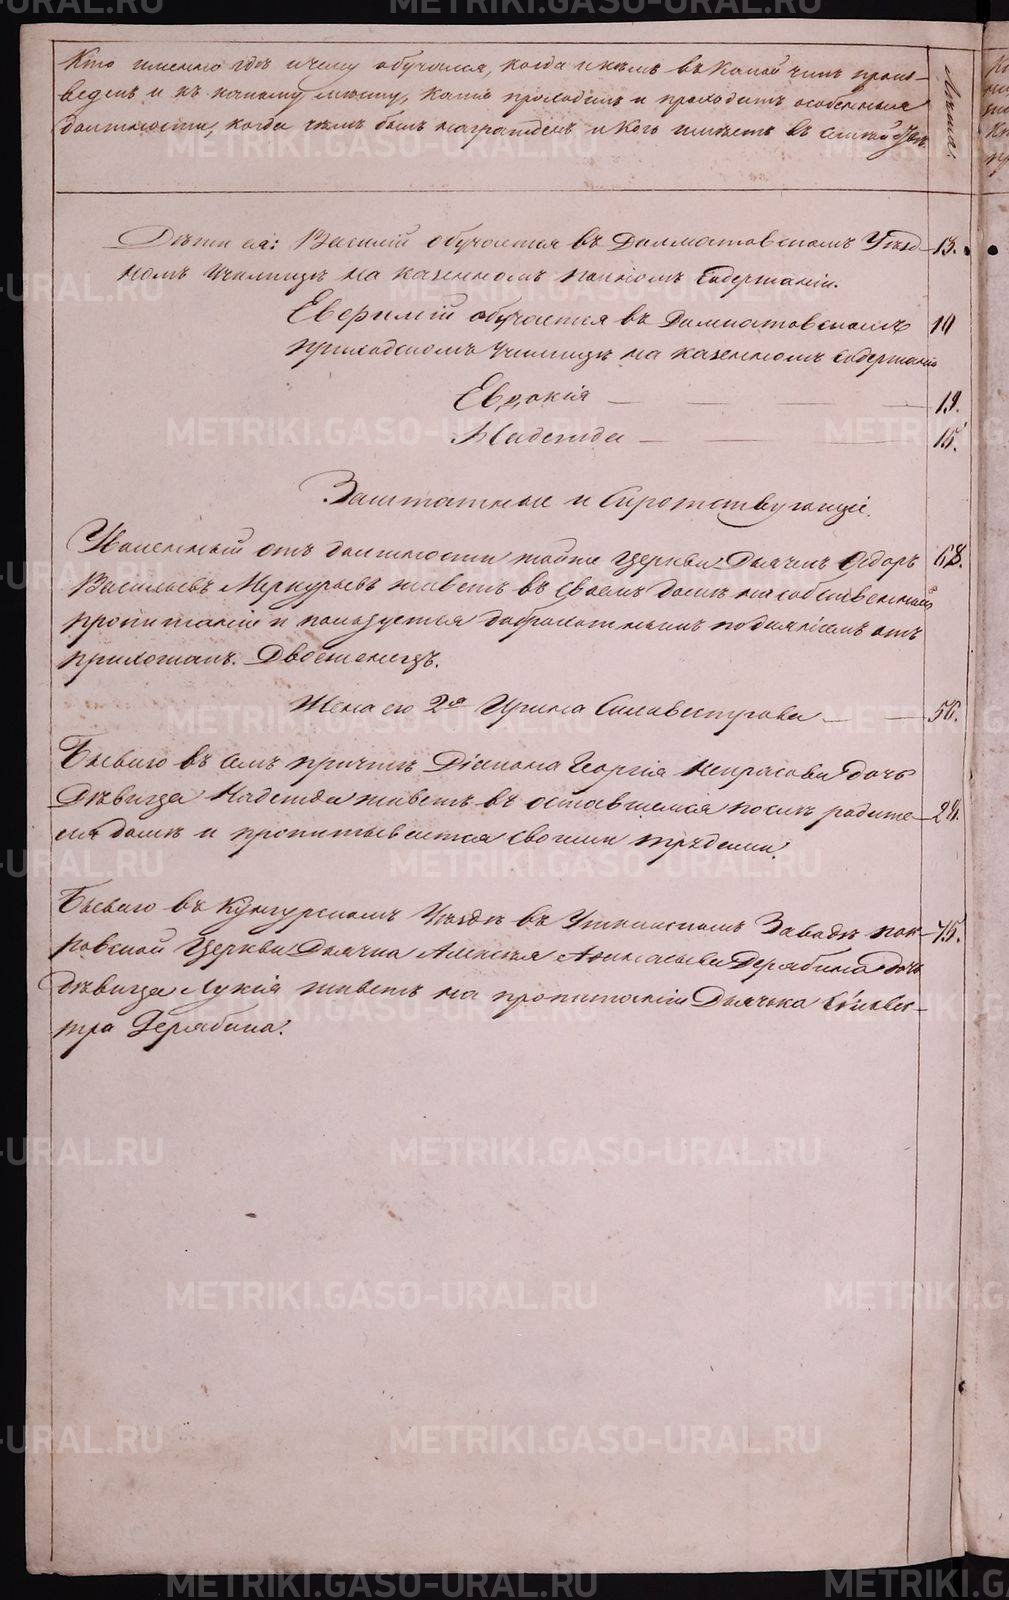 Кто именно гдѣ и чему обучался, когда и кѣмъ въ какой чинъ произ-
веденъ и къ какому мѣсту, какія проходилъ и проходитъ особенныя
должности, когда чѣмъ былъ награжденъ и кого имѣетъ въ семействѣ
Лѣта.
Дѣти ея: Василій обучается въ Далматовскомъ Уѣзд- 13.
номъ Училищѣ на казенномъ полномъ содержаніи.
Евфимій обучается въ Далматовскомъ 10
приходскомъ Училищѣ на казенномъ содержаніи
Евдокія — — — — 19.
Надежда — — — 15.
Заштатные и Сиротствующіе.
Уволенный отъ должности тойже Церкви Дьячекъ Ѳедоръ 68.
Васильевъ Меркурьевъ живетъ въ своемъ домѣ на собственномъ
пропитаніи и пользуется доброхотнымъ подаяніемъ отъ
прихожанъ. Двоеженецъ.
Жена его 2я Ирина Сильвестрова — — 56.
Бывшаго въ семъ причтѣ Діакона Георгія Некрасова дочь
Дѣвица Надежда живетъ въ оставшемся послѣ родите- 28.
ля домѣ и пропитывается своими трудами.
Бывшаго въ Кунгурскомъ Уѣздѣ въ Уткинскомъ Заводѣ пок- 75.
ровской Церкви Дьячка Алексѣя Дерябина дочь
дѣвица Лукія живетъ на пропитаніи Дьячка Сильвес-
тра Дерябина.
METRIKI.GASO-URAL.RU